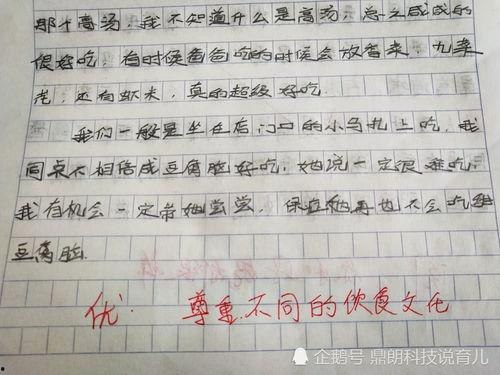 那个高汤，我不知道什么是高汤，总之咸咸的
很好吃，有时候爸爸吃的时候会放香菜，九菜
花，还有虾米，真的超级好吃．
我们一般是坐在店门口的小马扎上吃，我
同桌不相信咸豆腐脑好吃，她说一定很难吃，
我有机会一定带她尝尝，保证她再也不会吃甜
豆腐脑．
优． 尊重不同的饮食文化
企鹅号 鼎朗科技说育儿